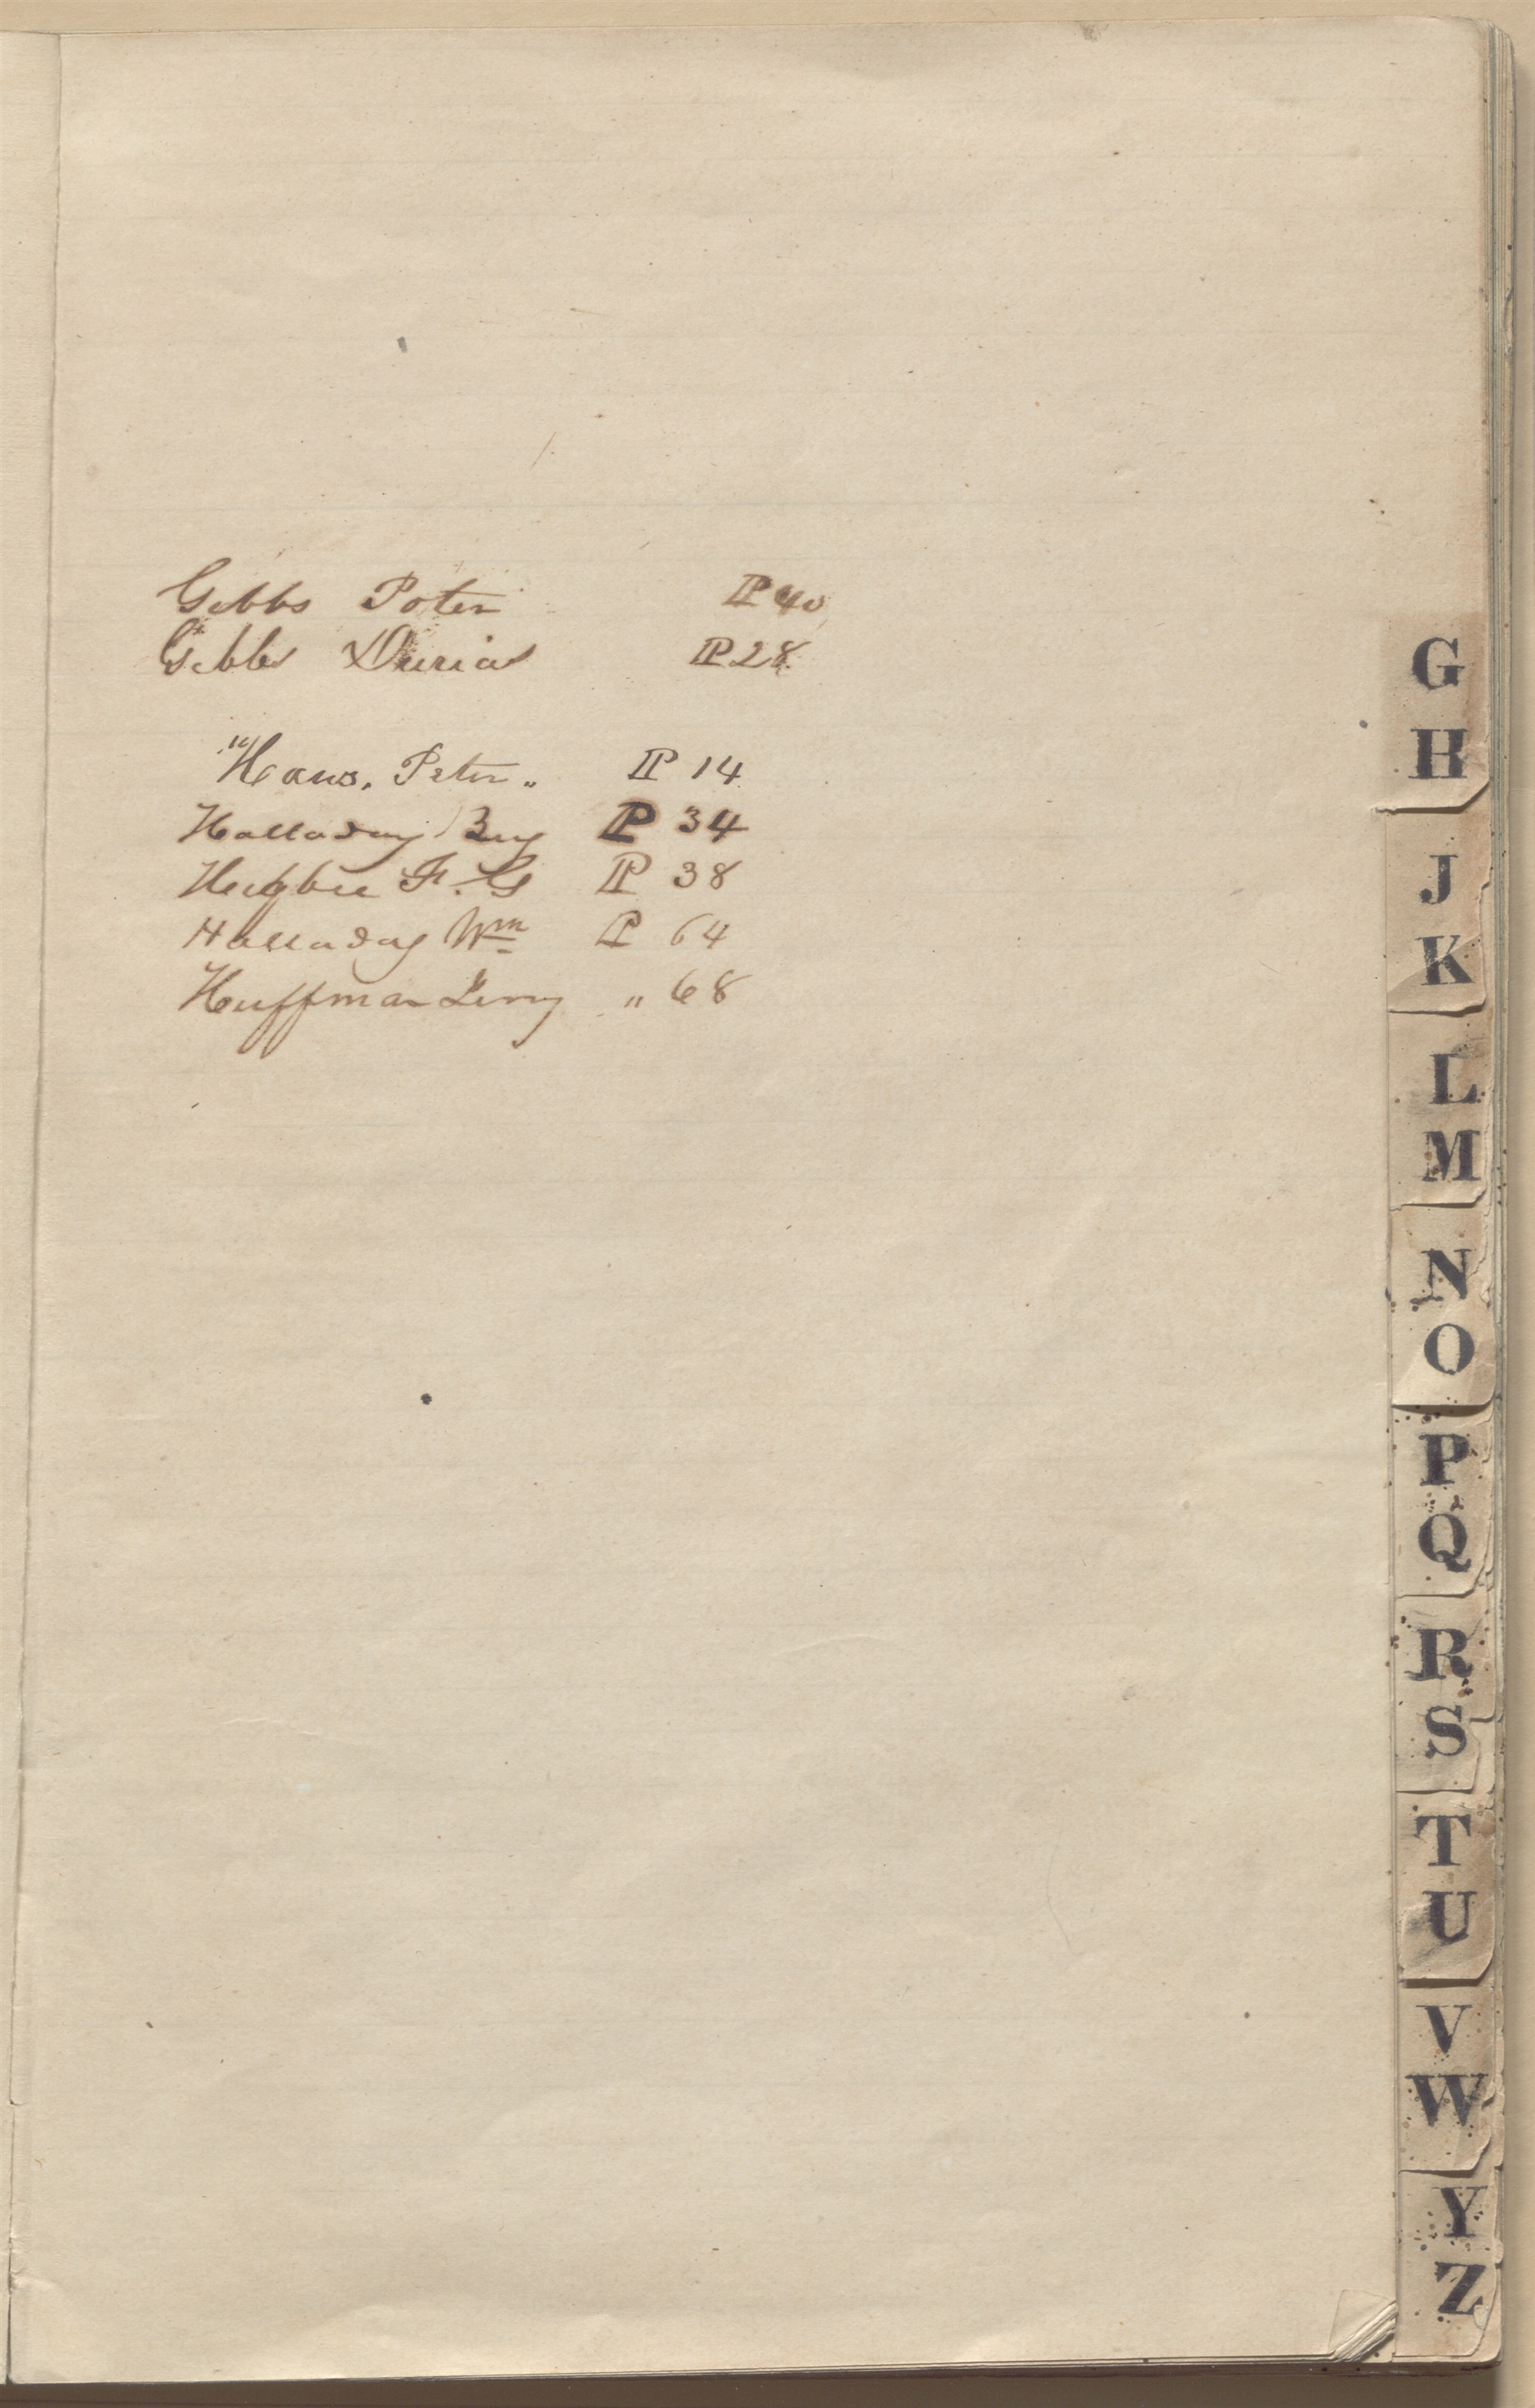 Gibbs Peter P 40
Gibbs Durias P 28
Haws, Peter „ P 14
Halladay P 34
Higbee F. G P 38
Halladay Wm P 64
Huffman „ 68
G
H
J
K
L
M
N
O
P
Q
R
S
T
U
V
W
Y
Z